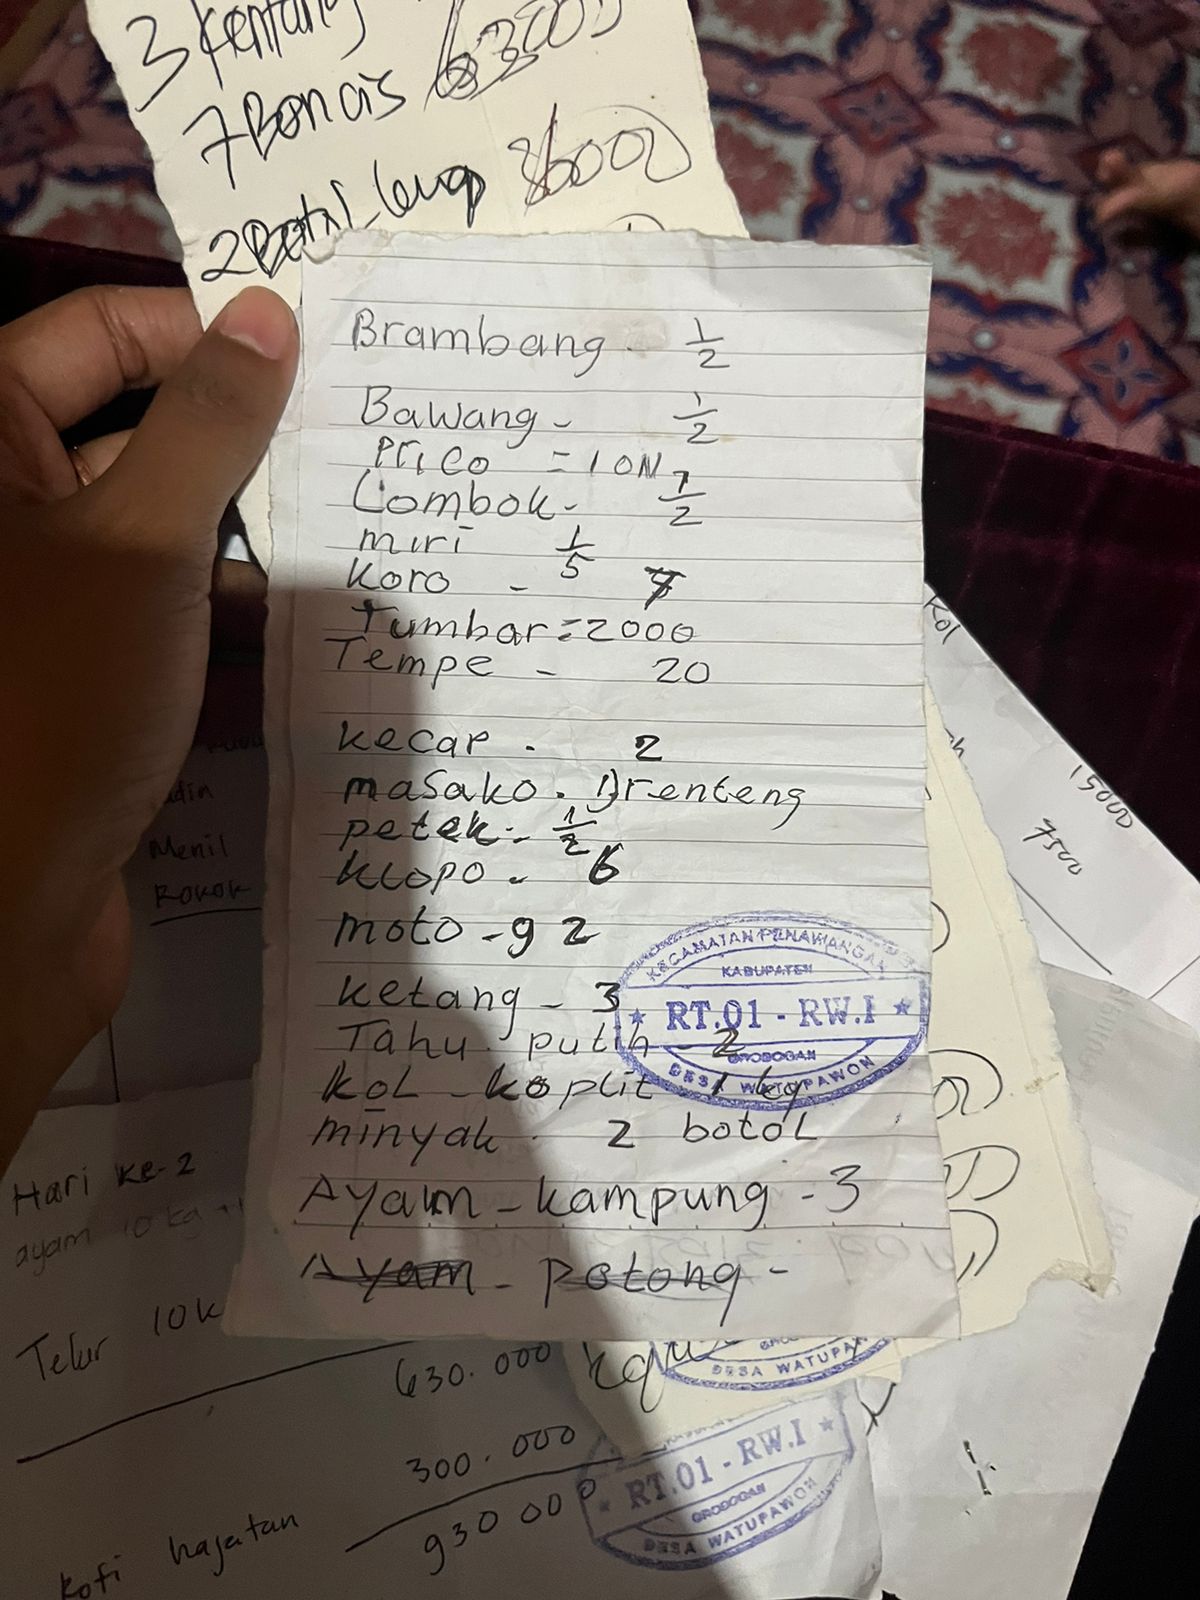 3 Kentang
7 Boncis 63000
2 Botol 36000
Brambang - 1/2
Bawang - 1/2
Prico = 1 ON
Lombok - 1/2
miri 1/5
Koro - 7
Tumbar = 2000
Tempe - 20
kecap - 2
masako. 1) renteng
petek - 1/2
klopo - 6
moto - g 2
ketang - 3
Tahu putih - 2
kol - koplit 1 kg
minyak - 2 botol
Ayam - kampung - 3
Ayam - potong -
KECAMATAN PENAWANGAN
KABUPATEN
RT.01 - RW.I
GROBOGAN
DESA WATUPAWON
Kol
15000
7500
Menil
ROKOK
Hari ke-2
ayam 10 kg
Telur 10 k
630.000
300.000
930 000
kofi hajatan
DESA WATUPA
RT.01 - RW.I
GROBOGAN
DESA WATUPAWON